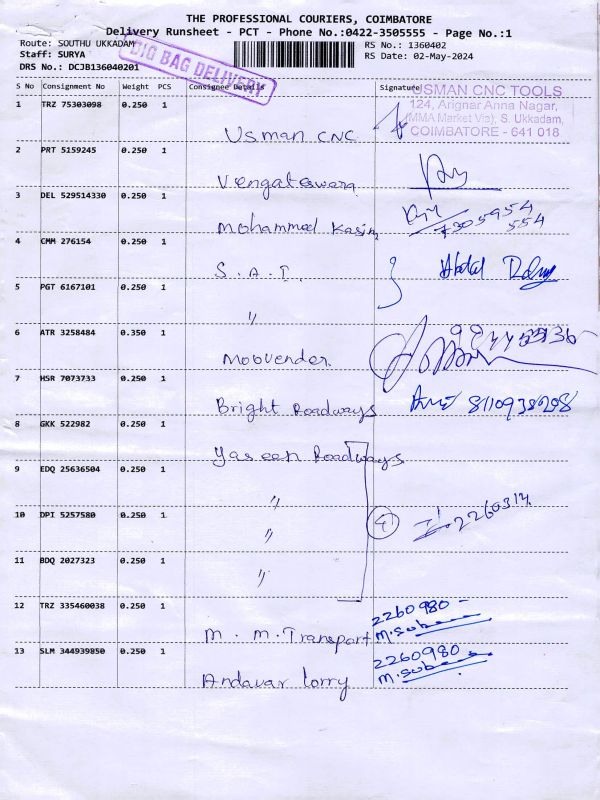 THE PROFESSIONAL COURIERS, COIMBATORE
Delivery Runsheet - PCT - Phone No.:0422-3505555 - Page No.:1
Route: SOUTHU UKKADAM
RS No.: 1360402
Staff: SURYA
RS Date: 02-May-2024
DRS No.: DCJB136040201
BIG BAG DELIVERY
S No Consignment No Weight PCS Consignee Details Signature
USMAN CNC TOOLS
124, Arignar Anna Nagar,
(MMA Market Via), S. Ukkadam,
COIMBATORE - 641 018
1 TRZ 75303098 0.250 1
Usman CNC
2 PRT 5159245 0.250 1
Vengateswara
3 DEL 529514330 0.250 1
Mohammed Kasim
7305954
554
4 CMM 276154 0.250 1
S.A.T. Abdul
5 PGT 6167101 0.250 1
"
6 ATR 3258484 0.350 1
Moovender
7 HSR 7073733 0.250 1
Bright Roadways 8110938208
8 GKK 522982 0.250 1
Yaseen Roadways
9 EDQ 25636504 0.250 1
"
10 DPI 5257580 0.250 1
" 4 2260314
11 BDQ 2027323 0.250 1
"
12 TRZ 335460038 0.250 1
2260980 -
M.M. Transport M.Subera
13 SLM 344939850 0.250 1
2260980
Andavar lorry M.Subera